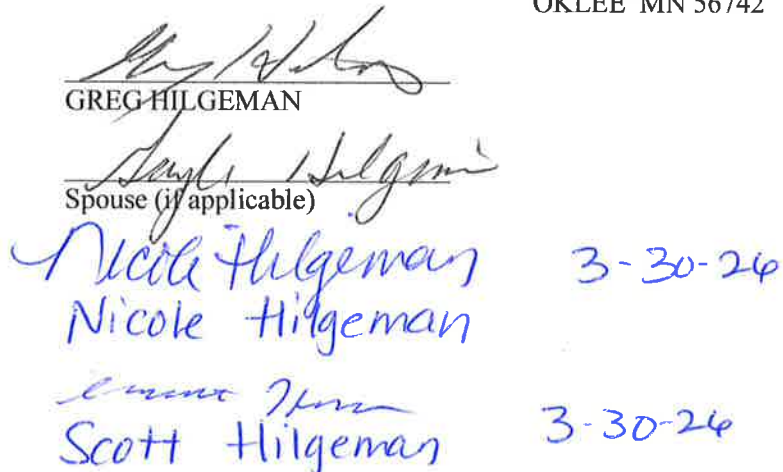 OKLEE MN 56742
GREG HILGEMAN
Gayle Hilgeman
Spouse (if applicable)
Nicole Hilgeman 3-30-26
Nicole Hilgeman
Scott Hilgeman 3-30-26